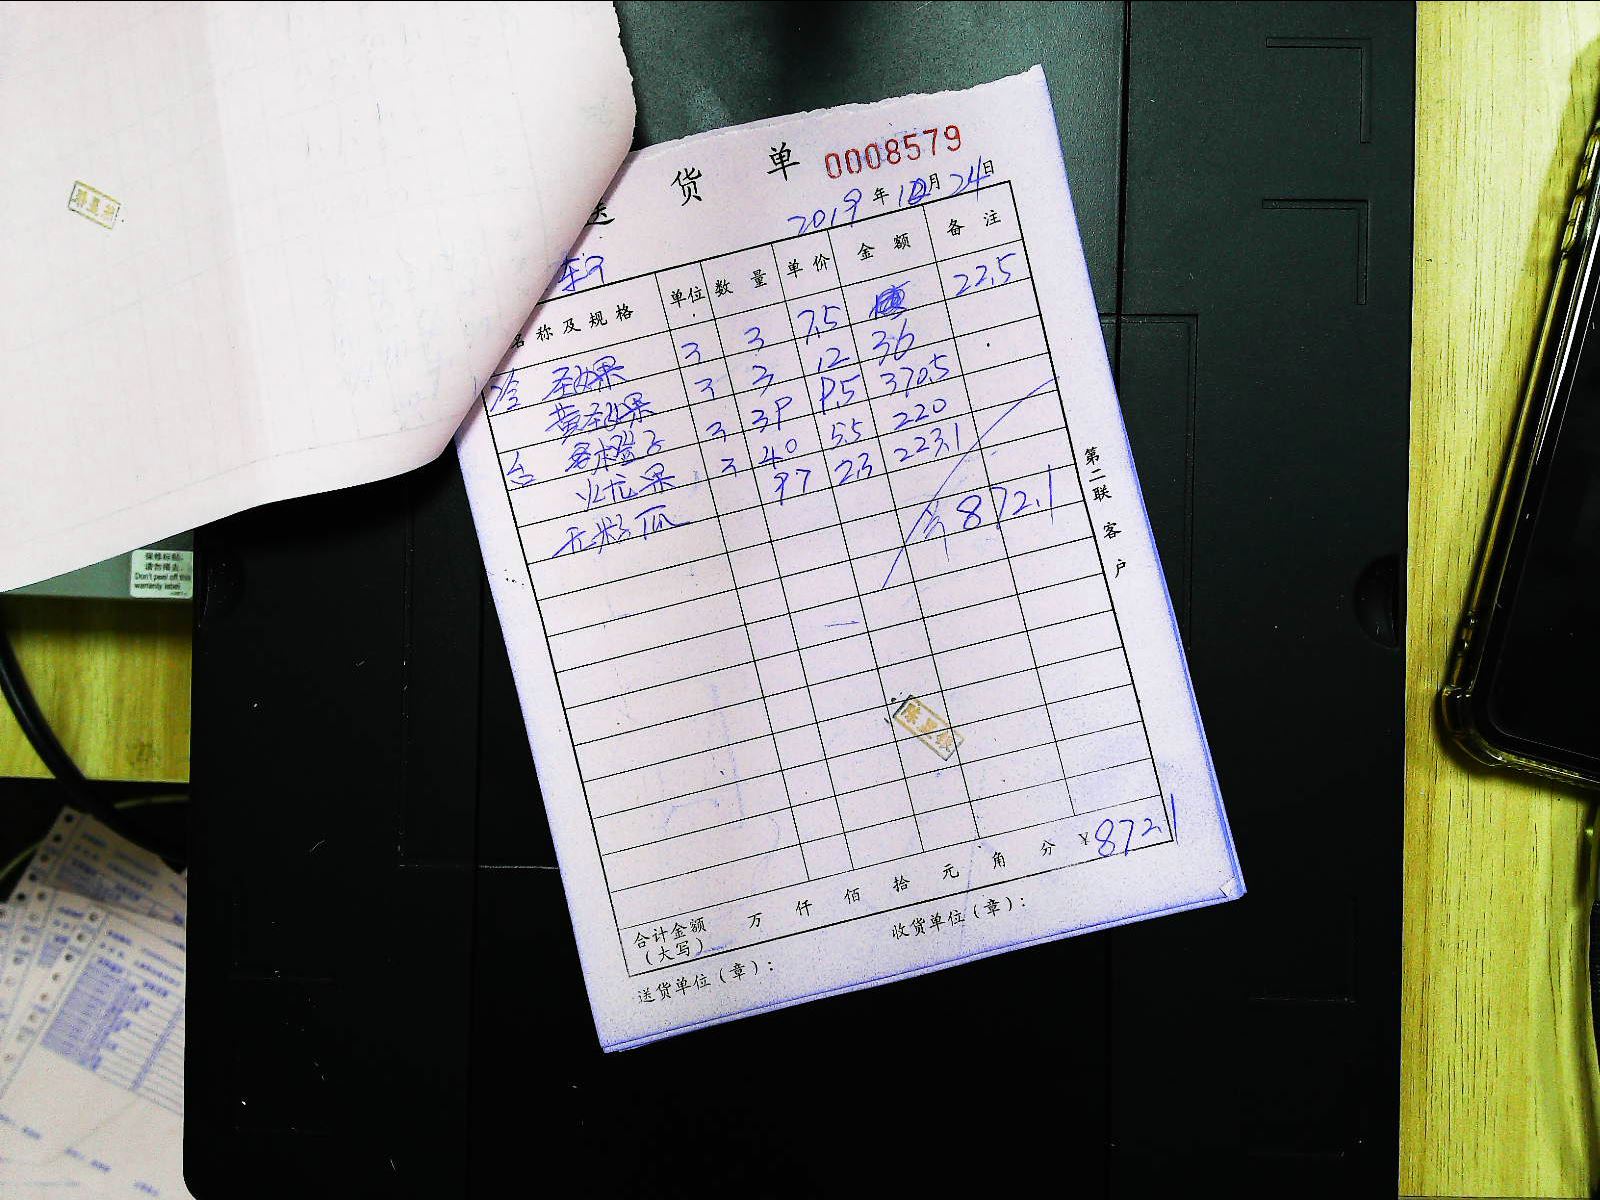 送 货 单 0008579
2019 年 10 月 24 日
名称及规格 单位 数量 单价 金额 备注
圣女果 3 3 7.5 22.5
黄圣女果 3 3 12 36
橙子 3 39 9.5 370.5
火龙果 3 40 5.5 220
无籽瓜 97 2.3 223.1
872.1
第二联 客户
合计金额 万 仟 佰 拾 元 角 分 ¥872.1
(大写)
送货单位(章): 收货单位(章):
保修标贴,
请勿撕去.
Don't peel off this
warranty label